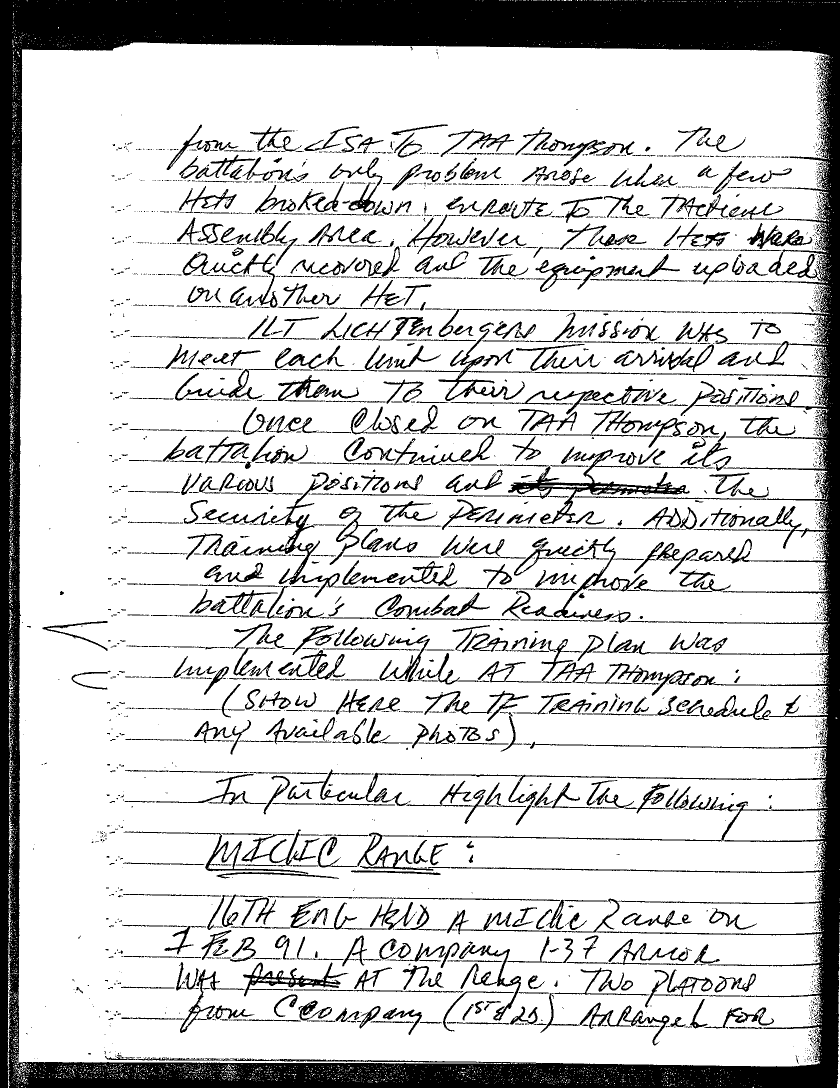 from the ISA To TAA Thompson. The
battalion's only problem arose when a few
Hets broke down enroute To The Tactical
Assembly Area. However, These Hets were
Quickly recovered and The equipment uploaded
on another HET.
1LT LICHTEnbergers mission was To
Meet each Unit upon Their arrival and
Guide them To their respective positions.
Once Closed on TAA Thompson, the
battalion Continued to improve its
various positions and the
Security of the Perimeter. ADDitionally,
Training plans were quickly prepared
and implemented to improve the
battalion's Combat Readiness.
The Following Training plan was
implemented while AT TAA Thompson:
(SHOW HERE The TF TRAINING schedule &
Any Available photos).
In Particular Highlight The Following:
MICLIC RANGE:
16TH ENG HELD A MICLIC Range on
1 FEB 91. A Company 1-37 ARMOR
WAS present AT The Range. Two PLATOONS
from C Company (1ST & 2D) ARRanged FOR